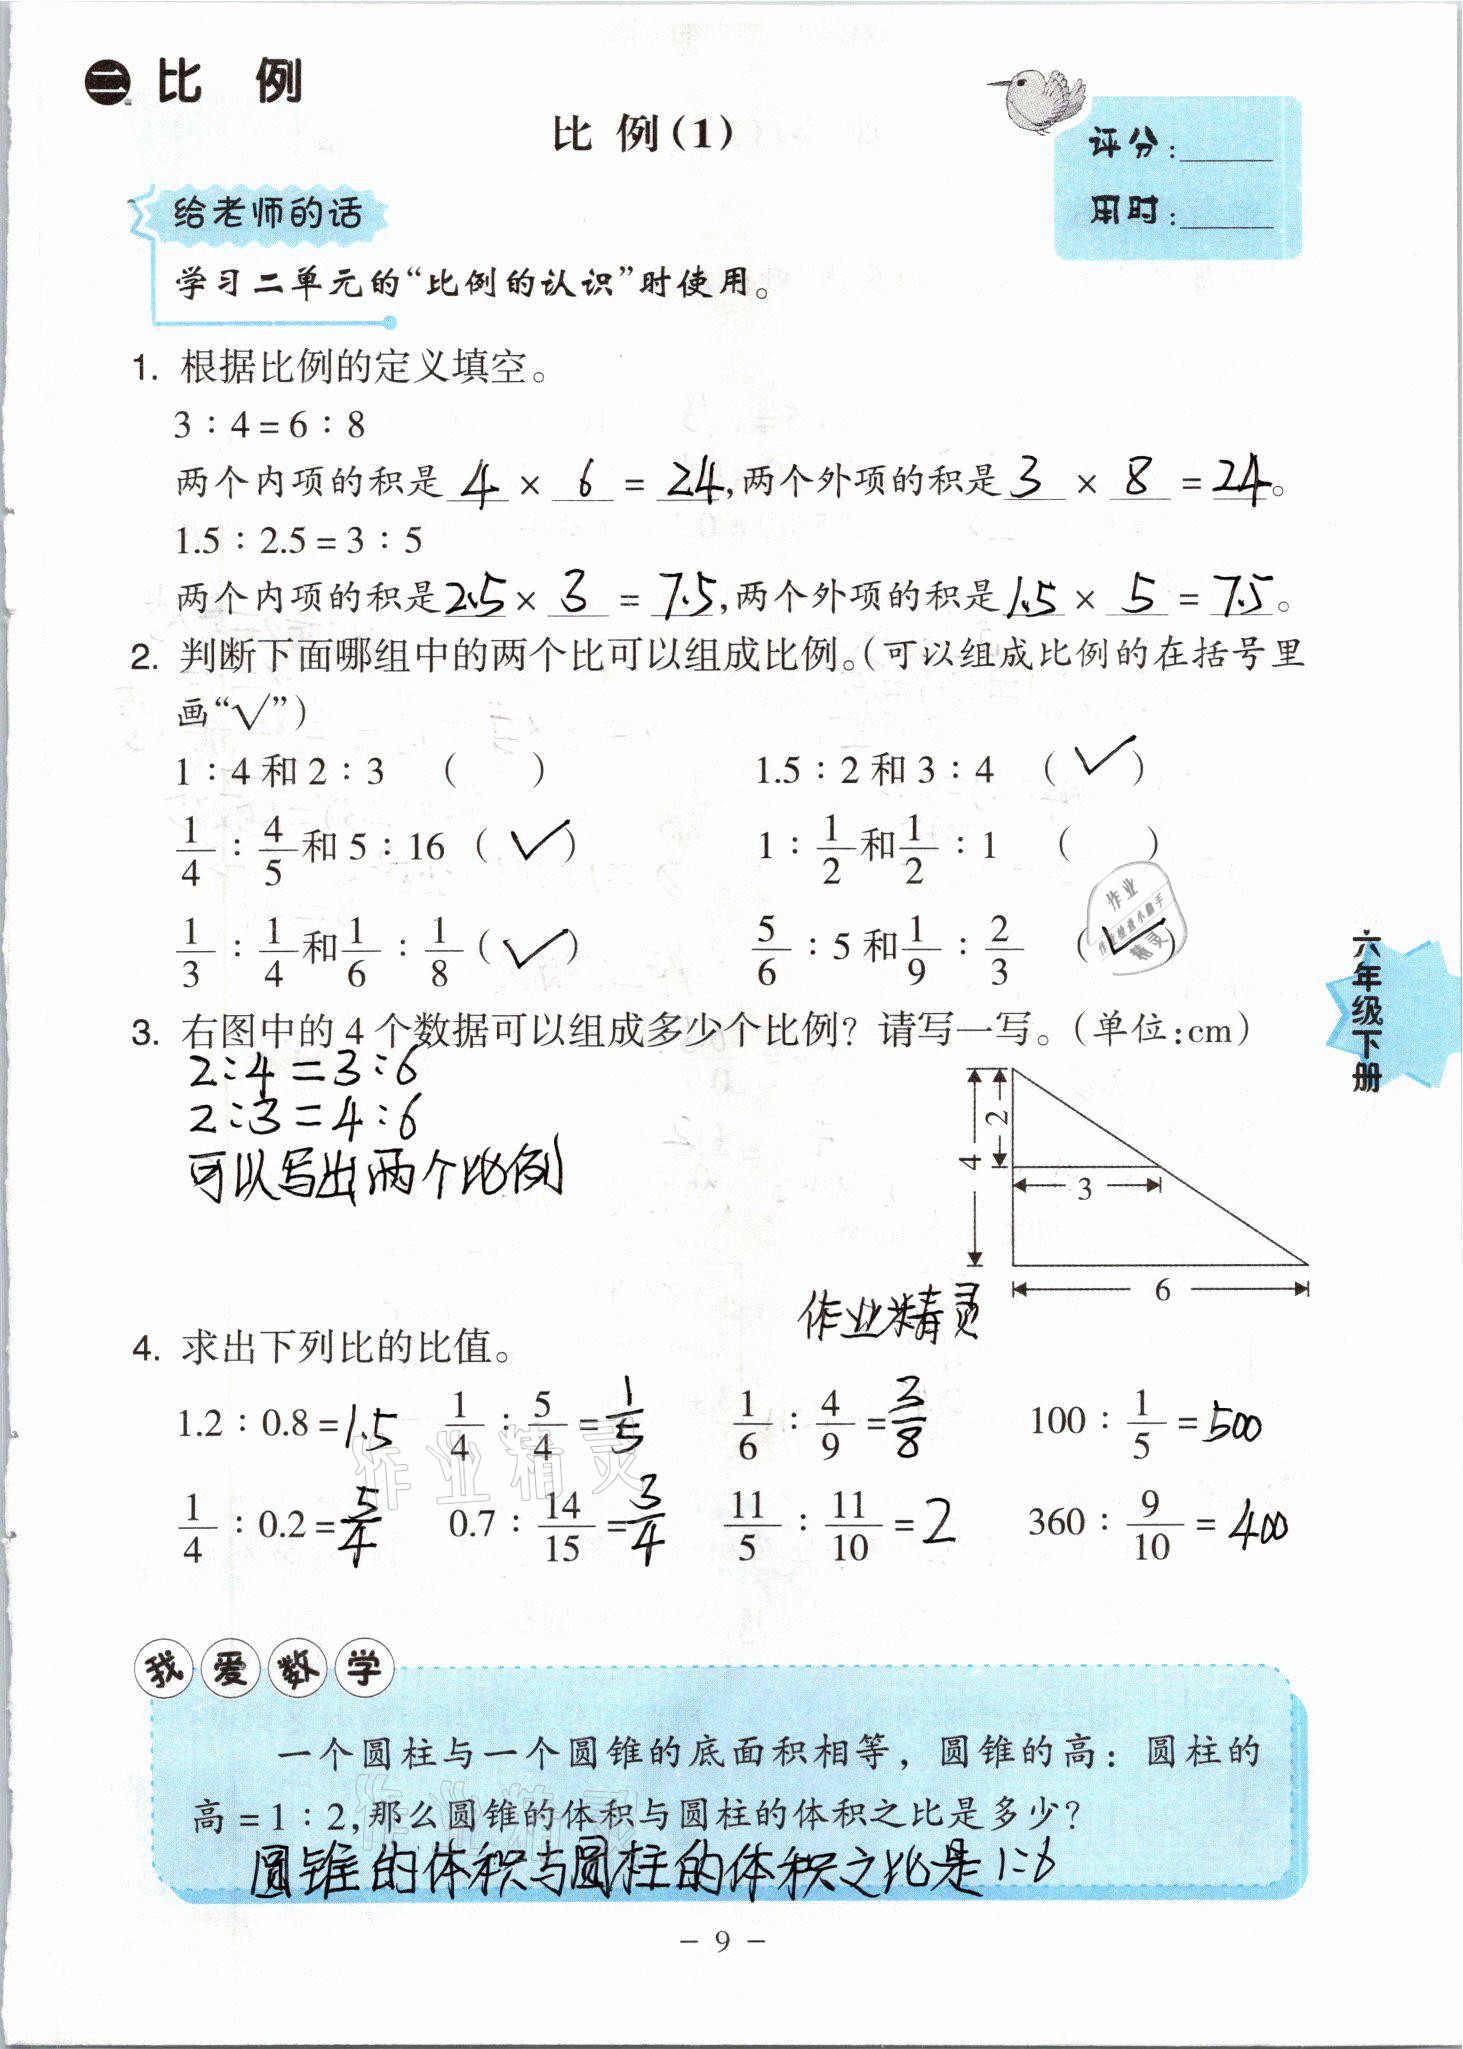 二 比 例
比 例(1)
评分:
用时:
给老师的话
学习二单元的“比例的认识”时使用。
1. 根据比例的定义填空。
3∶4=6∶8
两个内项的积是 4 × 6 = 24,两个外项的积是 3 × 8 = 24。
1.5∶2.5=3∶5
两个内项的积是 2.5 × 3 = 7.5,两个外项的积是 1.5 × 5 = 7.5。
2. 判断下面哪组中的两个比可以组成比例。(可以组成比例的在括号里
画“√”)
1∶4和2∶3 (  ) 1.5∶2和3∶4 (✓)
1/4∶4/5和5∶16 (✓) 1∶1/2和1/2∶1 (  )
1/3∶1/4和1/6∶1/8 (✓) 5/6∶5和1/9∶2/3 (✓)
作业
作业检查小助手
精灵
六年级下册
3. 右图中的4个数据可以组成多少个比例?请写一写。(单位:cm)
2∶4=3∶6
2∶3=4∶6
可以写出两个比例
2
4
3
6
作业精灵
4. 求出下列比的比值。
1.2∶0.8=1.5 1/4∶5/4=1/5 1/6∶4/9=3/8 100∶1/5=500
作业精灵
1/4∶0.2=5/4 0.7∶14/15=3/4 11/5∶11/10=2 360∶9/10=400
我爱数学
一个圆柱与一个圆锥的底面积相等，圆锥的高：圆柱的
高=1∶2,那么圆锥的体积与圆柱的体积之比是多少?
作业精灵
圆锥的体积与圆柱的体积之比是1∶6
- 9 -